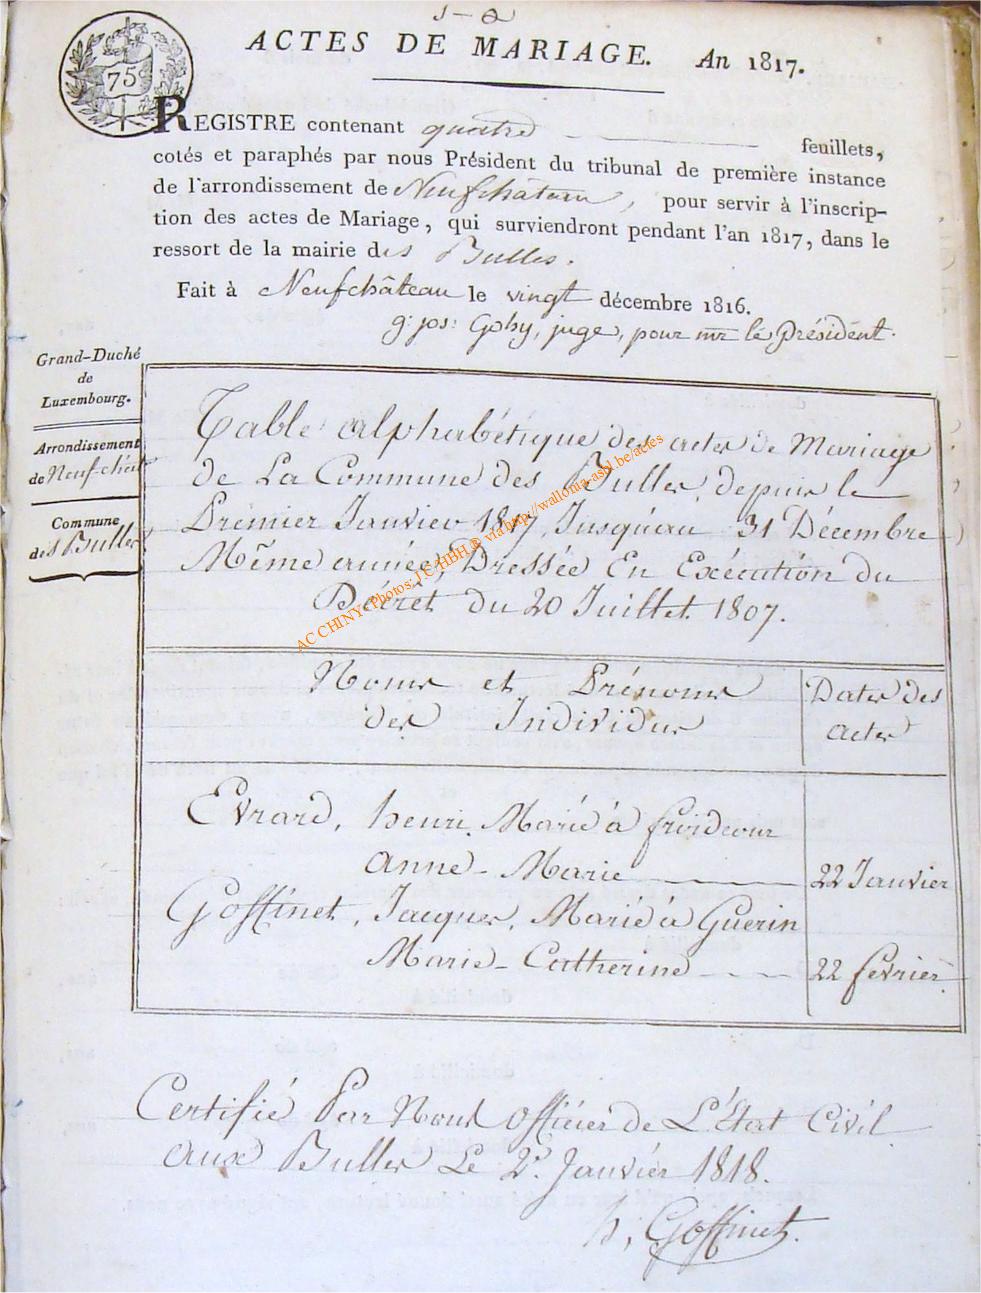 75
ACTES DE MARIAGE. An 1817.
REGISTRE contenant quatre feuillets,
cotés et paraphés par nous Président du tribunal de première instance
de l'arrondissement de Neufchâteau, pour servir à l'inscrip-
tion des actes de Mariage, qui surviendront pendant l'an 1817, dans le
ressort de la mairie des Bulles.
Fait à Neufchâteau le vingt décembre 1816.
g: jos: Goby, juge, pour mr le Président.
Grand-Duché
de
Luxembourg.
Arrondissement
de Neufchât
Commune
des Bulles
Table alphabétique des actes de Mariage
de La Commune des Bulles, depuis le
Premier Janvier 1817, Jusquéau 31 Décembre
Même année, Dressée En Exécution du
Décret du 20 Juillet 1807.
Noms et Prénoms
des Individus
Dates des
actes
Evrard, henri, Marié à froidcour
anne-Marie 22 Janvier
Goffinet, Jacques, Marié à Guerin
Marie-Catherine 22 fevrier
Certifié Par Nous officier de L'Etat Civil
aux Bulles Le 2 Janvier 1818.
h; Goffinet.
AC CHINY - Photos: J.C. HBH ® via http://wallonia-asbl.be/actes